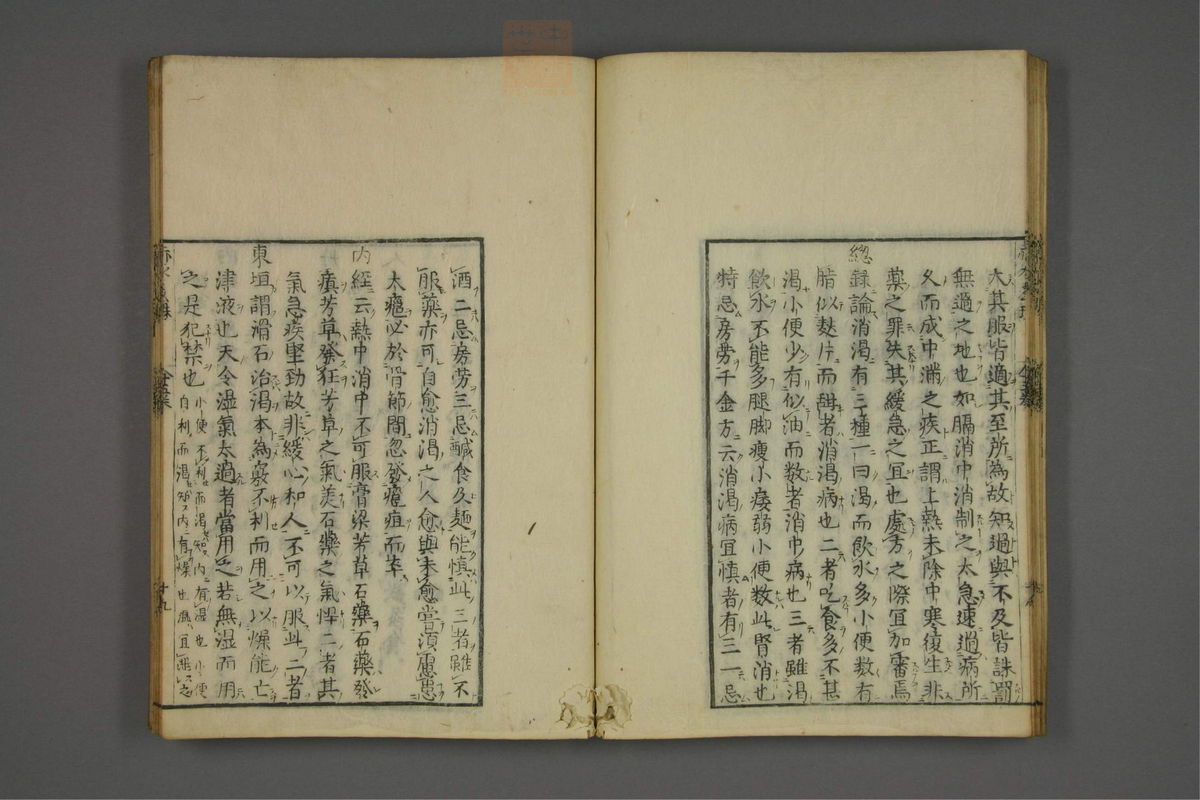 大其服皆適其至所為故知過與不及皆誅罰
無過之地也如膈消中消制之太急速過病所
久而成中滿之疾正謂上熱未除中寒復生非
藥之罪失其緩急之宜也處方之際宜加審焉
總錄論消渴有三種一曰渴而飲水多小便數有
脂似麩片而甜者消渴病也二者吃食多不甚
渴小便少有似油而数者消中病也三者雖渴
飲水不能多腿脚瘦小痿弱小便数此腎消也
特忌房勞千金方云消渴病宜慎者有三一忌
酒二忌房劳三忌鹹食及麵能慎此三者雖不
服藥亦可自愈消渴之人愈與未愈常須慮患
大癰必於骨節間忽發癰疽而卒
内經云熱中消中不可服膏粱芳草石藥石藥發
癲芳草發狂芳草之氣美石藥之氣悍二者其
氣急疾堅勁故非緩心和人不可以服此二者
東垣謂滑石治渴本為竅不利而用之以燥能亡
津液也天令湿氣太過者當用之若無湿而用
之是犯禁也小便不利而渴知内有湿也小便
自利而渴知内有燥也湿宜泄之